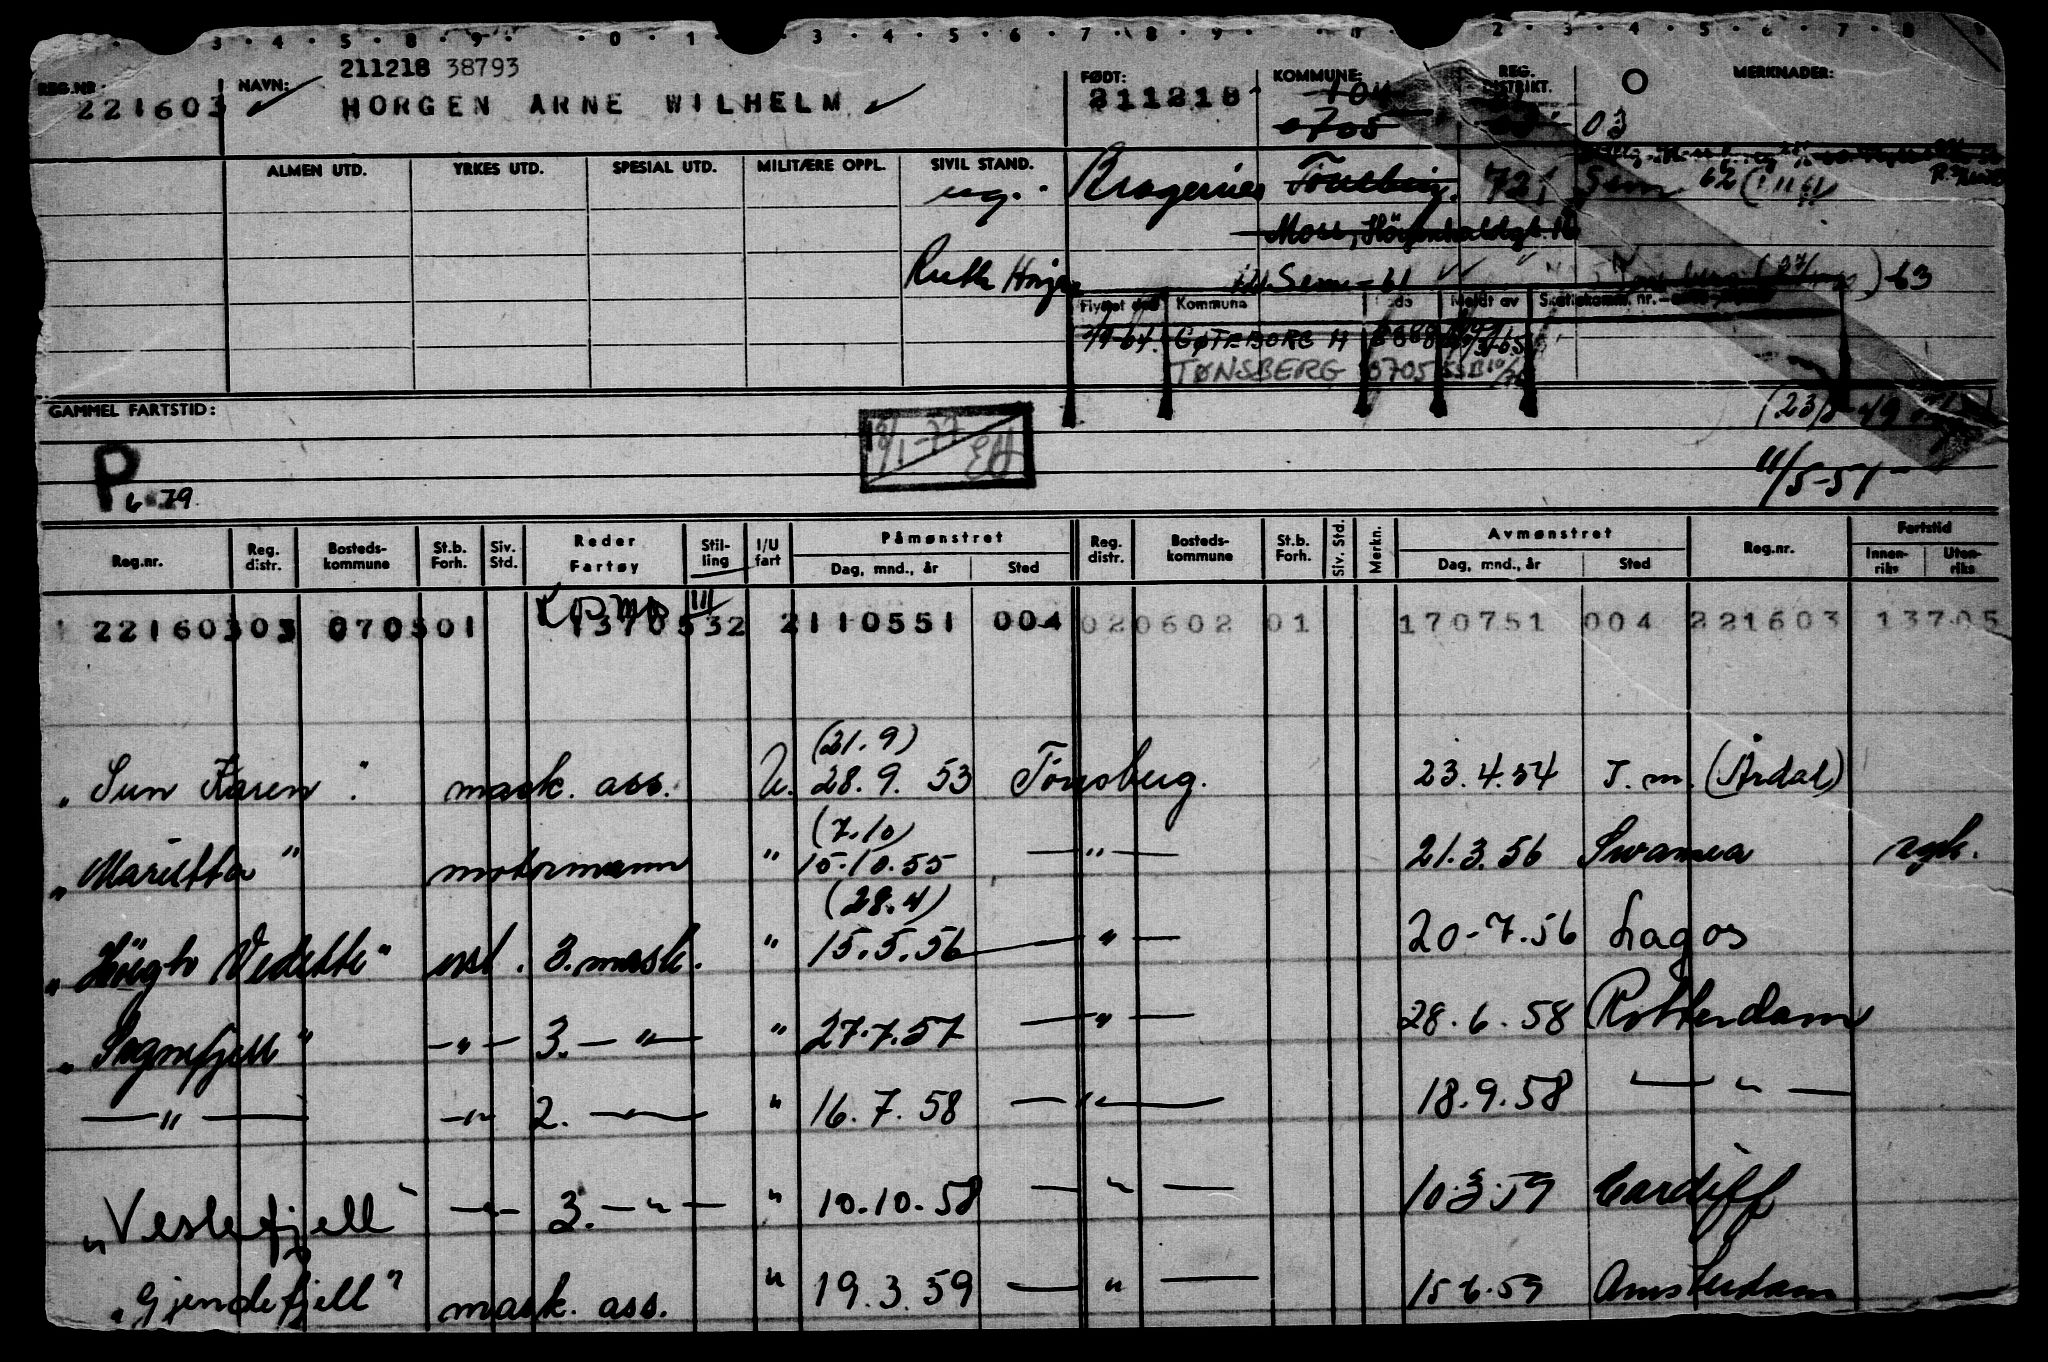 3 . 4 . 5 . 8 . 9 . 0 . 1 3 . 4 . 5 . 6 . 7 . 8 . 9 . 2 . 3 . 4 . 5 . 6 . 7 . 8
211218 38793
REG.NR. NAVN: FØDT: KOMMUNE: REG. DISTRIKT. MERKNADER:
221603 HORGEN ARNE WILHELM 211218 104
0705 03
ALMEN UTD. YRKES UTD. SPESIAL UTD. MILITÆRE OPPL. SIVIL STAND.
ug. Bragernes Tönsberg. 721 Sem 62
Moss,
Ruth Sem - 61 63
Flyttet dato Kommune Kode Meldt av Skattekomm. nr.
GØTEBORG H
TØNSBERG 0705
GAMMEL FARTSTID: (23/ -49
18/1-77 EH
P 6-79 11/5-51 -
Reg.nr. Reg. distr. Bosteds-kommune St.b. Forh. Siv. Std. Reder Fartøy Stil-ling I/U fart Påmønstret Dag, mnd., år Sted Reg. distr. Bosteds-kommune St.b. Forh. Siv. Std. Merkn. Avmønstret Dag, mnd., år Sted Reg.nr. Fartstid Innen-riks Uten-riks
221603 03 0705 01 1370 532 2 110551 004 02 0602 01 170751 004 221603 13705
(21.9)
„Sun Karen" mask. ass. U. 28.9.53 Tönsberg. 23.4.54 T.m. (Årdal)
(7.10)
„Marietta" motormann " 15.10.55 — " — 21.3.56 Swansea syk.
(28.4)
„Höegh Vedette" 3. mask. " 15.5.56 — " — 20-7.56 Lagos
„Sognefjell" — " — 3. — " — " 27.7.57 — " — 28.6.58 Rotterdam
— " — — " — 2. — " — " 16.7.58 — " — 18.9.58 — " —
„Veslefjell" — " — 3. — " — " 10.10.58 — " — 10.3.59 Cardiff
„Gjendefjell" mask. ass. " 19.3.59 — " — 15.6.59 Amsterdam —